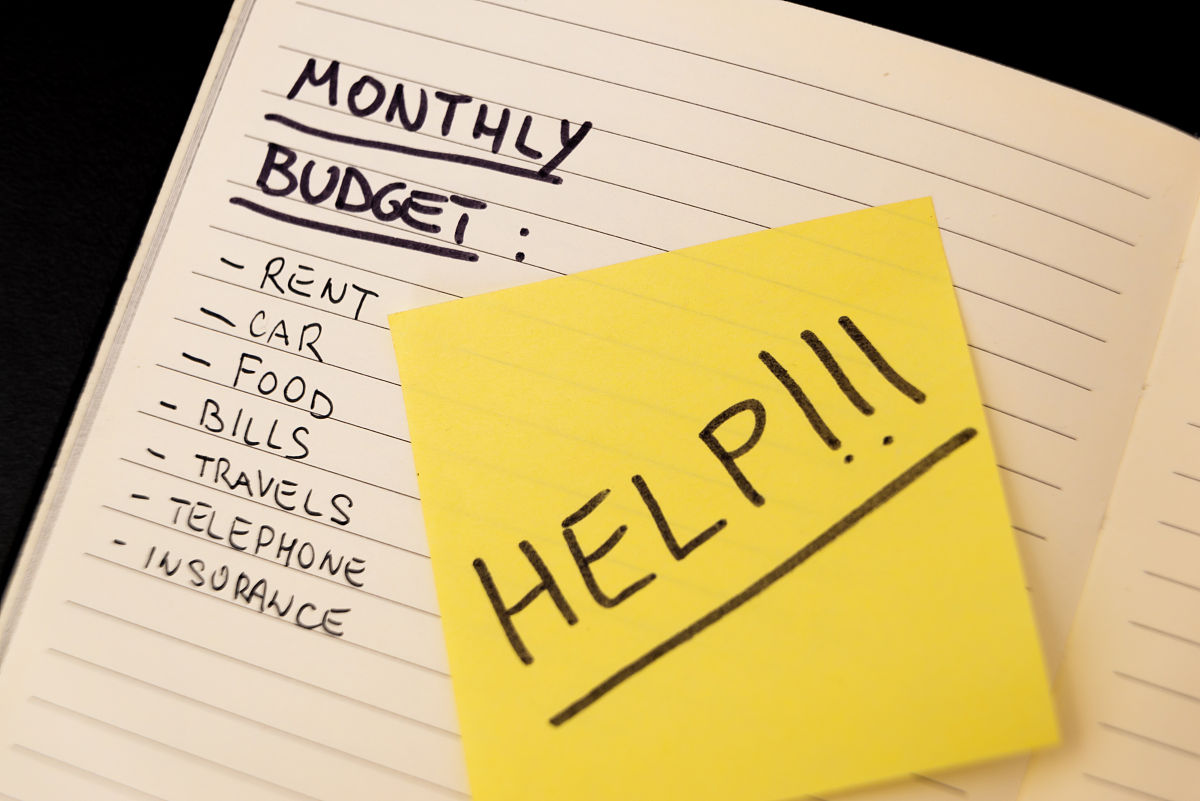 MONTHLY
BUDGET :
- RENT
- CAR
- FOOD
- BILLS
- TRAVELS
- TELEPHONE
- INSURANCE
HELP!!!